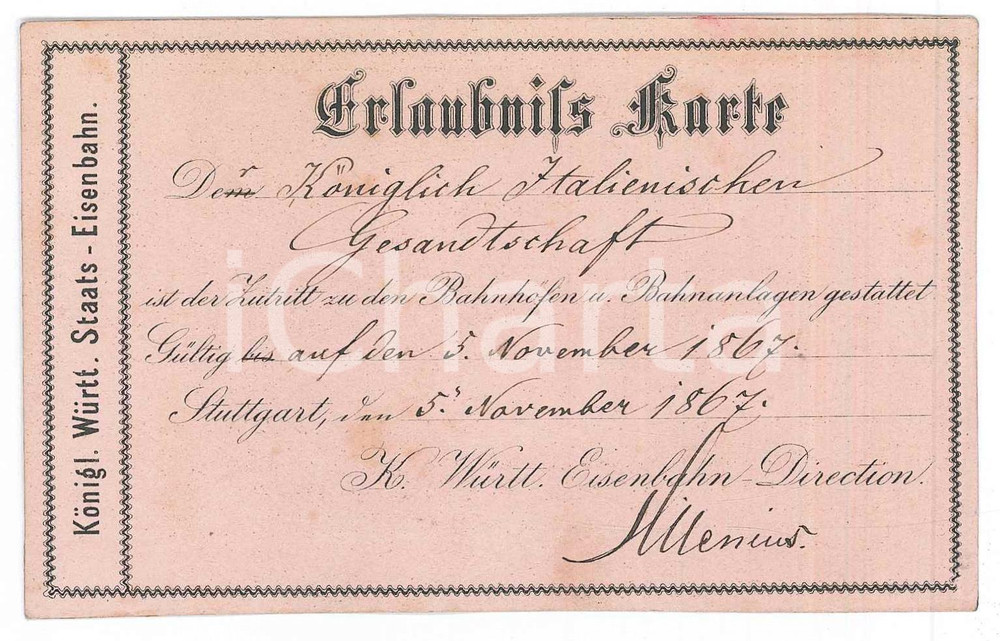 Königl. Württ. Staats-Eisenbahn.
Erlaubniſs Karte
Der Königlich Italienischen
Gesandtschaft
ist der Zutritt zu den Bahnhofen u. Bahnanlagen gestattet
Gültig bis auf den 5. November 1867.
Stuttgart, den 5. November 1867.
K. Württ. Eisenbahn-Direction.
iCharta